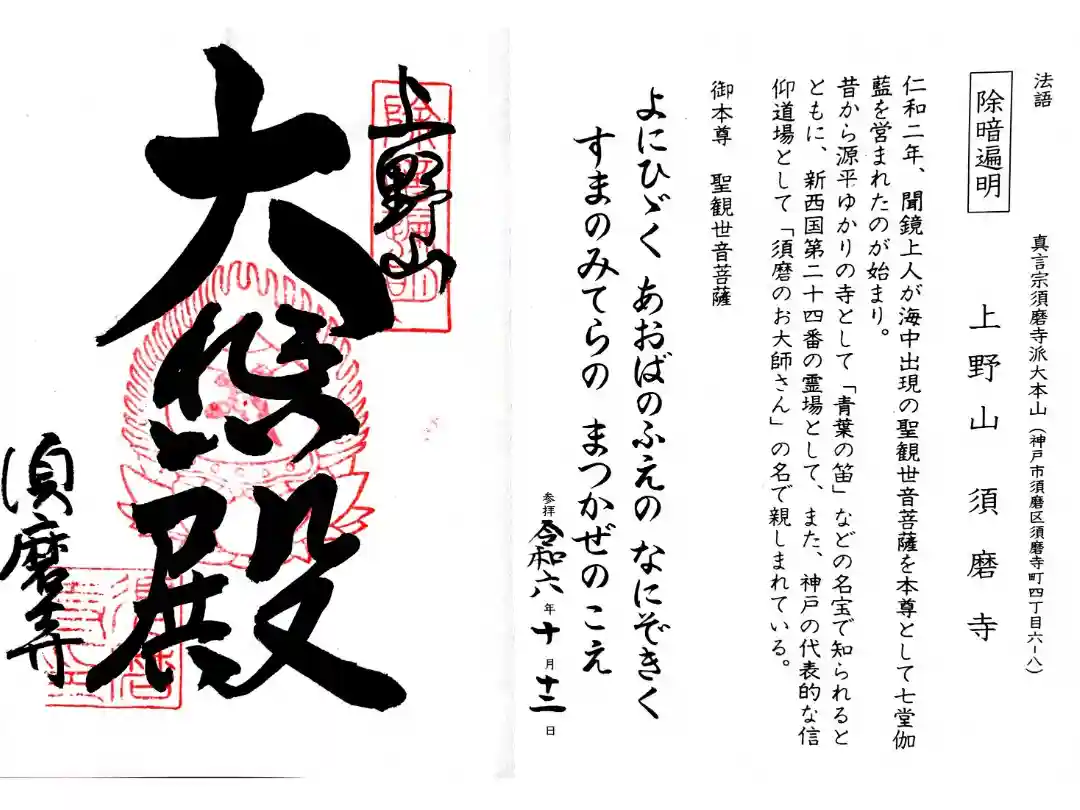 法語
真言宗須磨寺派大本山(神戸市須磨区須磨寺町四丁目六ー八)
除暗遍明
上野山 須磨寺
仁和二年、聞鏡上人が海中出現の聖観世音菩薩を本尊として七堂伽
藍を営まれたのが始まり。
昔から源平ゆかりの寺として「青葉の笛」などの名宝で知られると
ともに、新西国第二十四番の霊場として、また、神戸の代表的な信
仰道場として「須磨のお大師さん」の名で親しまれている。
御本尊 聖観世音菩薩
よにひゞく あおばのふえの なにぞきく
すまのみてらの まつかぜのこえ
参拝 令和六年十月十二日
上野山
大悲殿
須磨寺